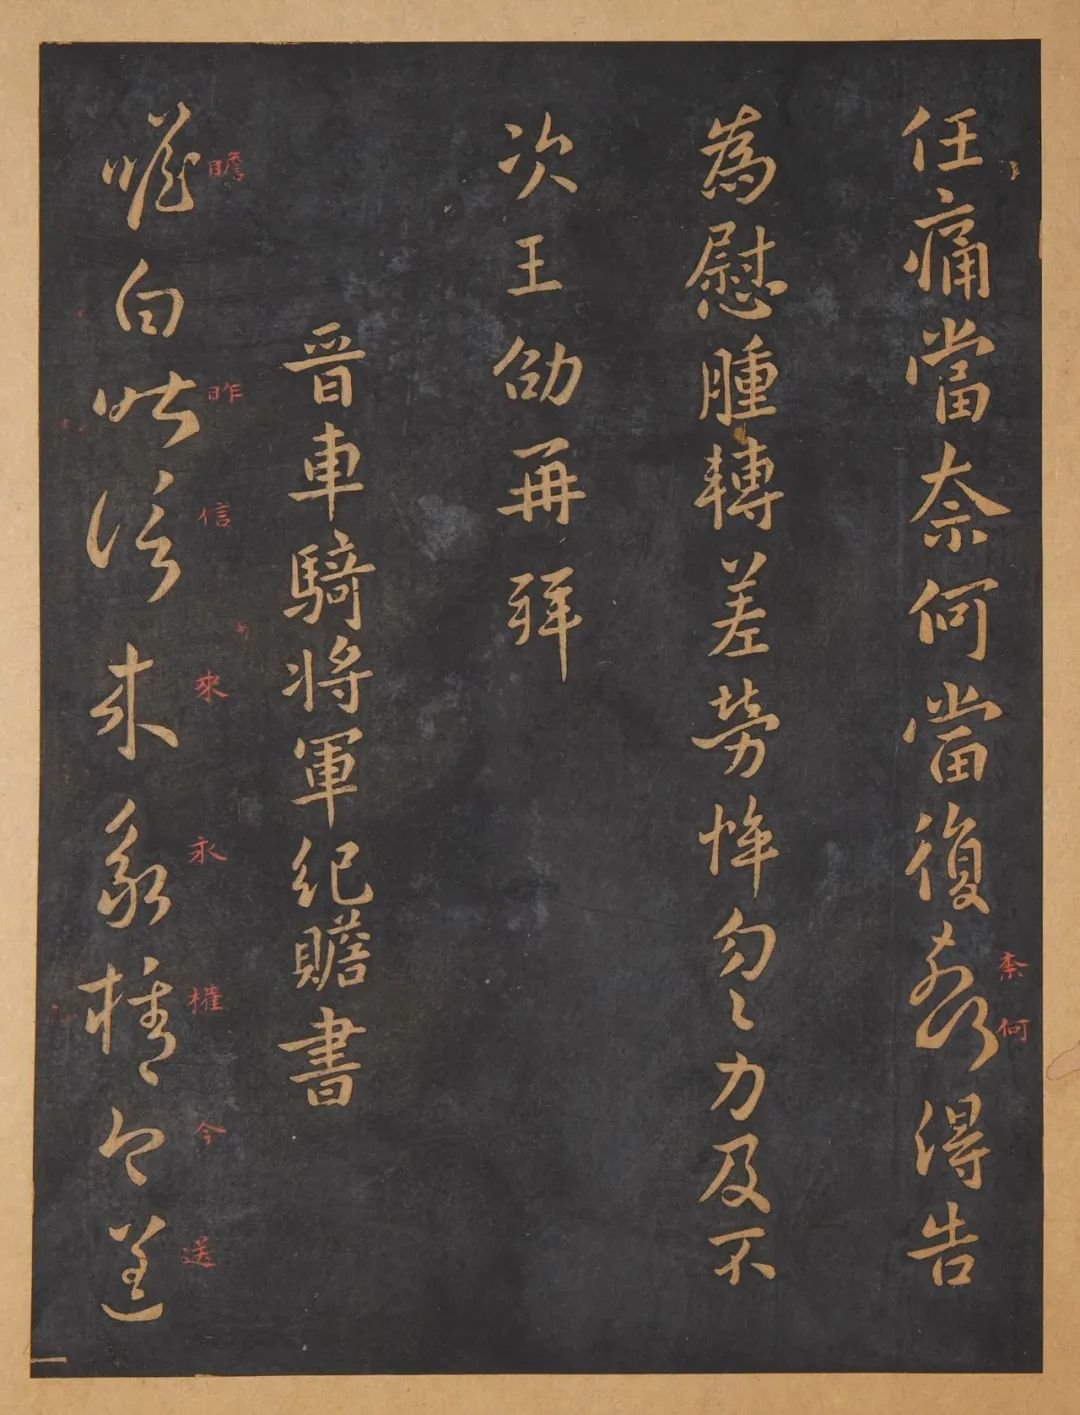 任痛當奈何當復奈何得告
奈何
為慰腫轉差勞悴勿〻力及不
次王劭再拜
晉車騎將軍紀贍書
瞻昨信來永權今送
瞻白昨信來永權今送